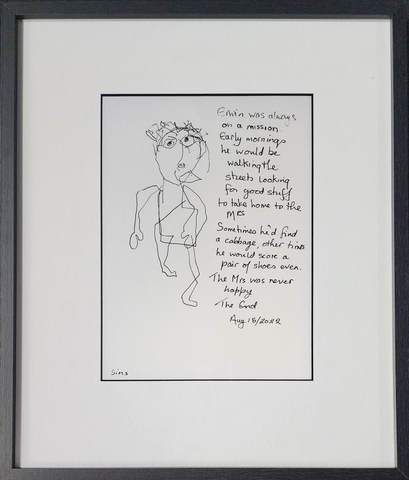 Erwin was always
on a mission.
Early mornings
he would be
walking the
streets looking
for good stuff
to take home to the
Mrs
Sometimes he'd find
a cabbage, other times
he would score a
pair of shoes even.
The Mrs was never
happy
The End
Aug 18/2022
Sims